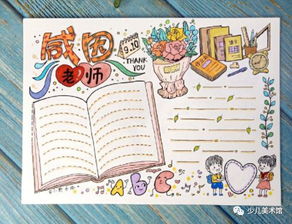 感恩
老师
9.10
THANK
YOU
ABC
少儿美术馆